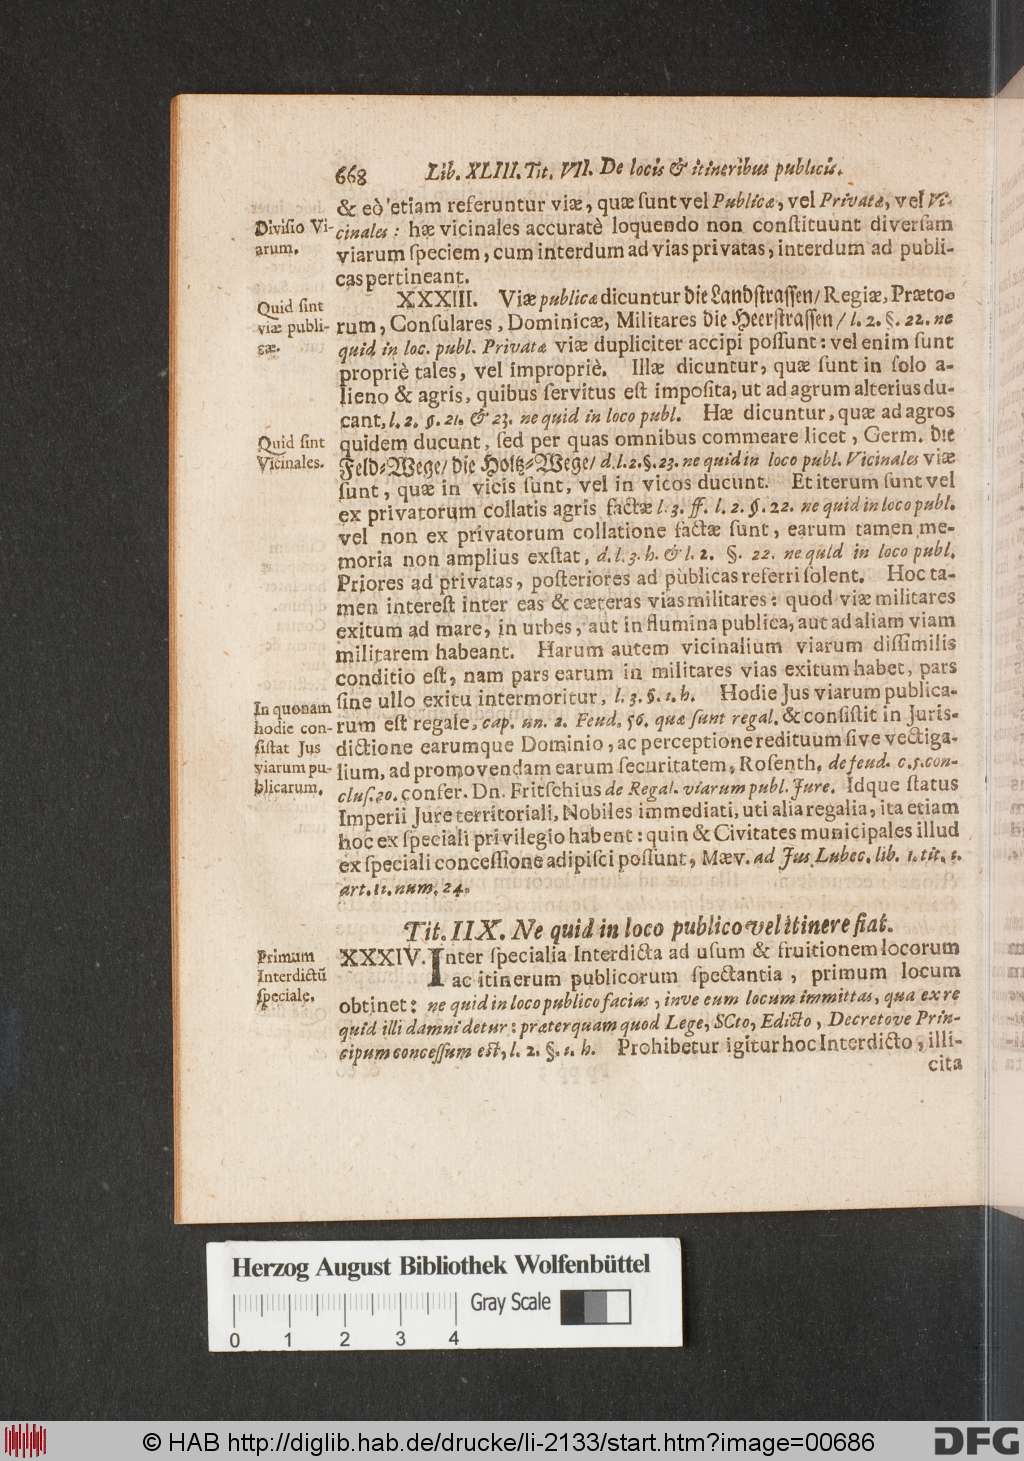 668 Lib. XLIII. Tit. VII. De locis & itineribus publicis.
& eò etiam referuntur viæ, quæ ſunt vel Publicæ, vel Privatæ, vel Vi-
Diviſio Vi-
arum.
cinales: hæ vicinales accuratè loquendo non conſtituunt diverſam
viarum ſpeciem, cum interdum ad vias privatas, interdum ad publi-
cas pertineant.
Quid ſint
viæ publi-
cæ.
XXXIII. Viæ publicæ dicuntur die Landſtraſſen/ Regiæ, Præto-
rum, Conſulares, Dominicæ, Militares die Heerſtraſſen/ l. 2. §. 22. ne
quid in loc. publ. Privatæ viæ dupliciter accipi poſſunt: vel enim ſunt
propriè tales, vel impropriè. Illæ dicuntur, quæ ſunt in ſolo a-
lieno & agris, quibus ſervitus eſt impoſita, ut ad agrum alterius du-
cant, l. 2. §. 21. & 23. ne quid in loco publ. Hæ dicuntur, quæ ad agros
Quid ſint
Vicinales.
quidem ducunt, ſed per quas omnibus commeare licet, Germ. die
Feld-Wege/ die Holtz-Wege/ d. l. 2. §. 23. ne quid in loco publ. Vicinales viæ
ſunt, quæ in vicis ſunt, vel in vicos ducunt. Et iterum ſunt vel
ex privatorum collatis agris factæ l. 3. ff. l. 2. §. 22. ne quid in loco publ.
vel non ex privatorum collatione factæ ſunt, earum tamen me-
moria non amplius exſtat, d. l. 3. h. & l. 2. §. 22. ne quid in loco publ.
Priores ad privatas, poſteriores ad publicas referri ſolent. Hoc ta-
men intereſt inter eas & cæteras vias militares: quod viæ militares
exitum ad mare, in urbes, aut in flumina publica, aut ad aliam viam
militarem habeant. Harum autem vicinalium viarum diſſimilis
conditio eſt, nam pars earum in militares vias exitum habet, pars
ſine ullo exitu intermoritur, l. 3. §. 1. h. Hodie Jus viarum publica-
In quonam
hodie con-
ſiſtat Jus
viarum pu-
blicarum.
rum eſt regale, cap. un. 2. Feud. 56. quæ ſunt regal. & conſiſtit in Juris-
dictione earumque Dominio, ac perceptione redituum ſive vectiga-
lium, ad promovendam earum ſecuritatem, Roſenth. de feud. c. 5. con-
cluſ. 20. confer. Dn. Fritſchius de Regal. viarum publ. Jure. Idque ſtatus
Imperii Jure territoriali, Nobiles immediati, uti alia regalia, ita etiam
hoc ex ſpeciali privilegio habent: quin & Civitates municipales illud
ex ſpeciali conceſſione adipiſci poſſunt, Mæv. ad Jus Lubec. lib. 1. tit. 1.
art. 11. num. 24.
Tit. IIX. Ne quid in loco publico vel itinere fiat.
Primum
Interdictũ
ſpeciale.
XXXIV. Inter ſpecialia Interdicta ad uſum & fruitionem locorum
ac itinerum publicorum ſpectantia, primum locum
obtinet: ne quid in loco publico facias, inve eum locum immittas, qua ex re
quid illi damni detur: præterquam quod Lege, SCto, Edicto, Decretove Prin-
cipum conceſſum eſt, l. 2. §. 1. h. Prohibetur igitur hoc Interdicto, illi-
cita
Herzog August Bibliothek Wolfenbüttel
Gray Scale
0 1 2 3 4
© HAB http://diglib.hab.de/drucke/li-2133/start.htm?image=00686
DFG